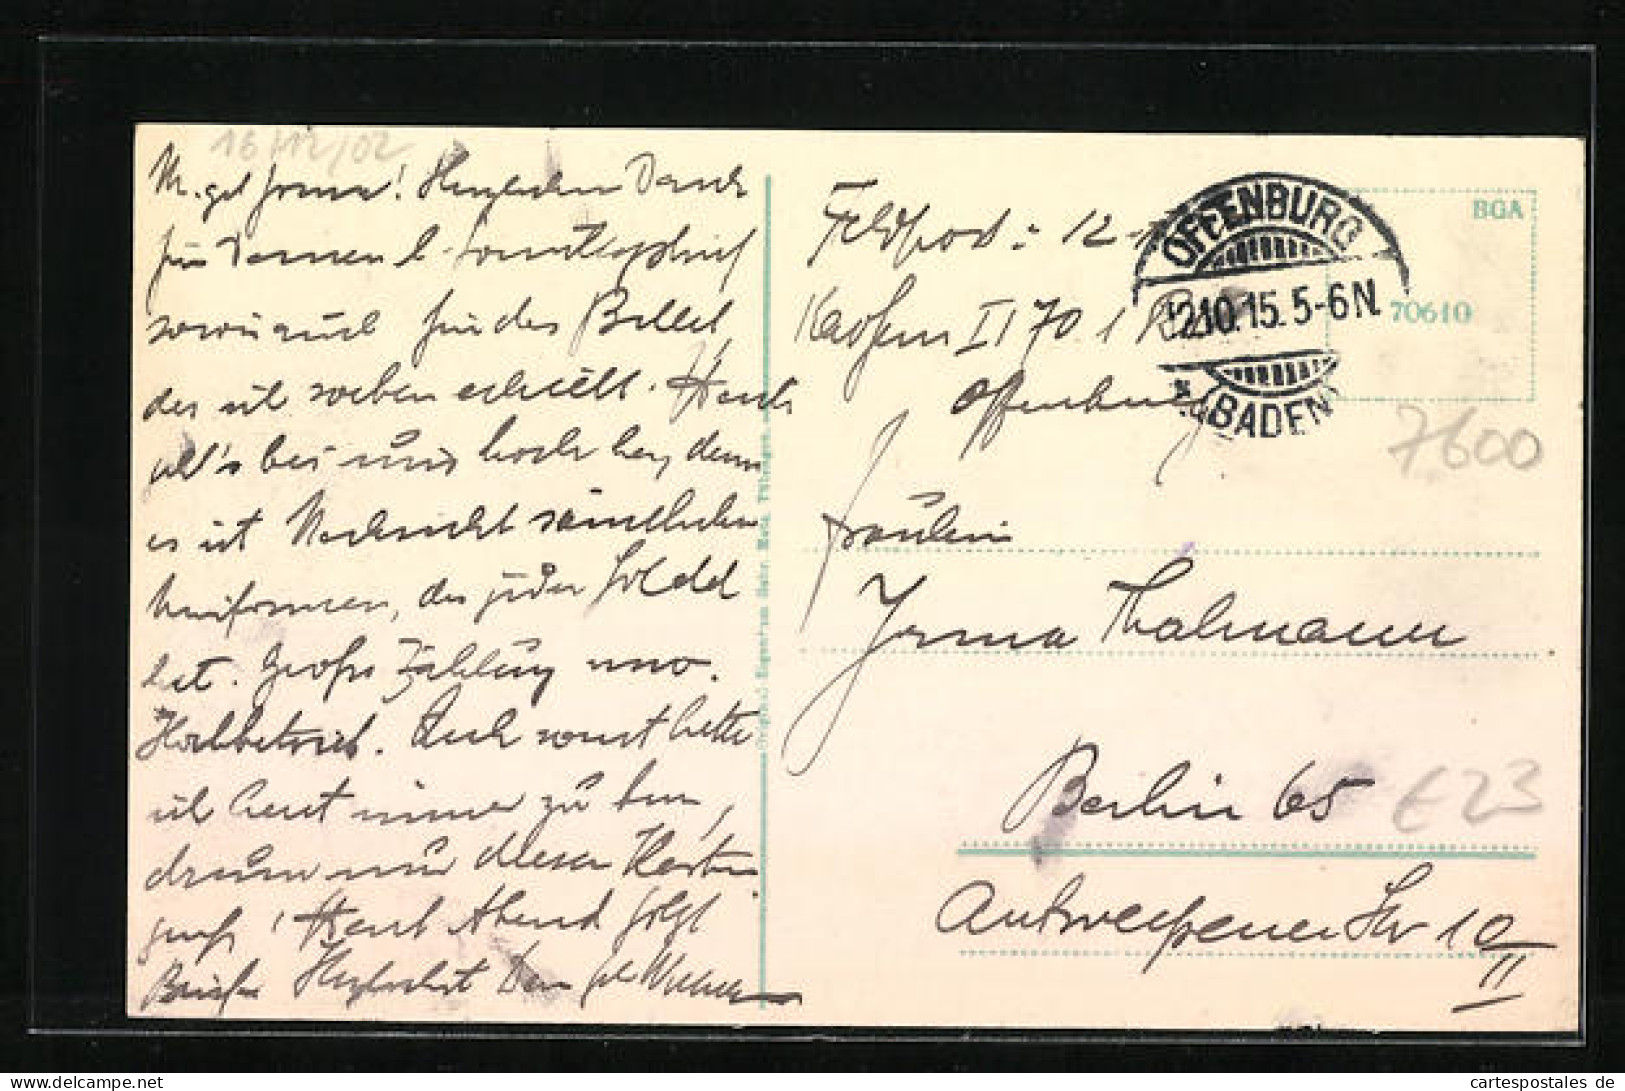 16/12/02
M. gel Irma! Herzlichen Dank
für Deinen l. Sonntagsbrief
sowie auch für das Billet,
das ich soeben erhielt. Heute
geht's bei uns hoch her, denn
es ist Nachsicht sämtlicher
Uniformen, die jeder Soldat
hat. Große Zählung und
Hochbetrieb. Auch sonst hatte
ich heut immer zu tun,
drum nur diesen Karten
gruß! Heut Abend folgt
Brief. Herzlichst Dein
Original Eigentum Gebr. Metz, Tübingen.
Feldpost: 12.
II 70. 1
Offenburg
OFFENBURG
12.10.15. 5-6N.
(BADEN)
BGA
70610
7600
Fräulein
Irma Thalmann
Berlin 65
€23
Antwerpener Str 10
II
www.cartespostales.de
cartespostales de